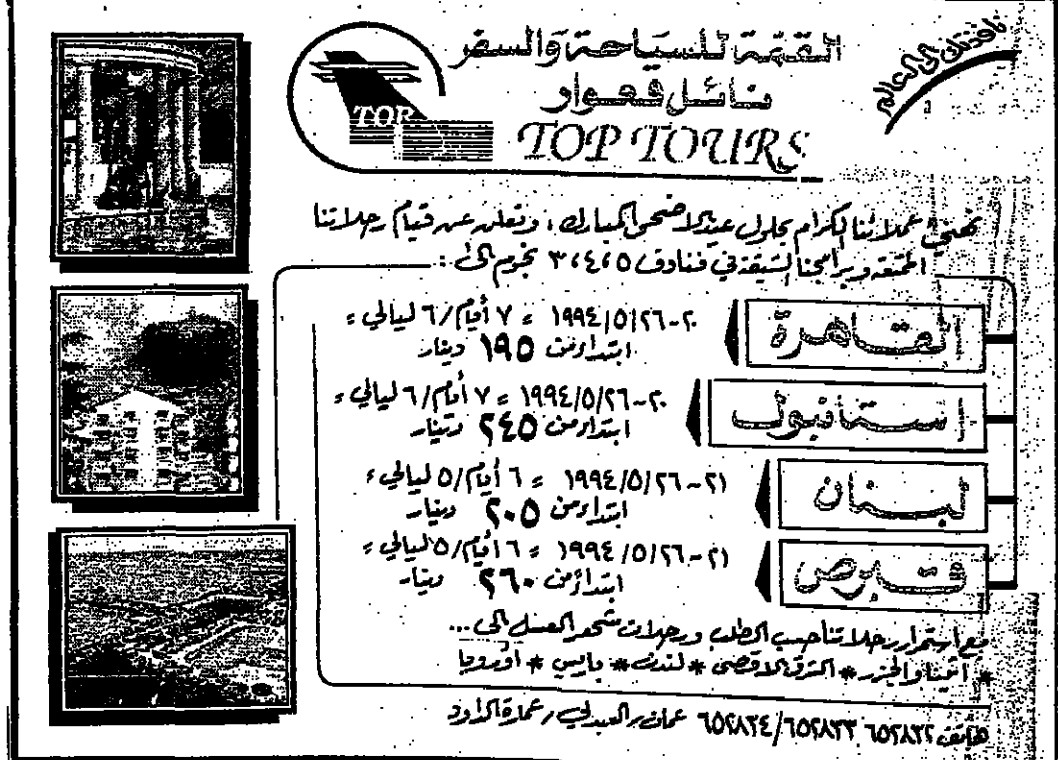 نافذتك إلى العالم
القمة للسياحة والسفر
نائل قعوار
TOP TOURS
TOP
نهنئ عملائنا الكرام بحلول عيد الاضحى المبارك، ونعلن عن قيام رحلاتنا
الممتعة وبرامجنا الشيقة في فنادق ٣،٤،٥ نجوم الى :
القاهرة
٢٠-١٩٩٤/٥/٢٦ = ٧ أيام/٦ ليالي =
ابتداء من ١٩٥ دينار
استانبول
٢٠-١٩٩٤/٥/٢٦ = ٧ أيام/٦ ليالي =
ابتداء من ٢٤٥ دينار
لبنان
٢١-١٩٩٤/٥/٢٦ = ٦ أيام/٥ ليالي =
ابتداء من ٢٠٥ دينار
قبرص
٢١-١٩٩٤/٥/٢٦ = ٦ أيام/٥ ليالي =
ابتداء من ٢٦٠ دينار
مع استمرار رحلاتنا حسب الطلب ورحلات شهر العسل الى ...
* اثينا والجزر * الشرق الاقصى * لندن * باريس * أوروبا
هاتف ٦٥٢٨٣٢ ٦٥٢٨٣٣/٦٥٢٨٣٤ عمان، العبدلي، عمارة الداود